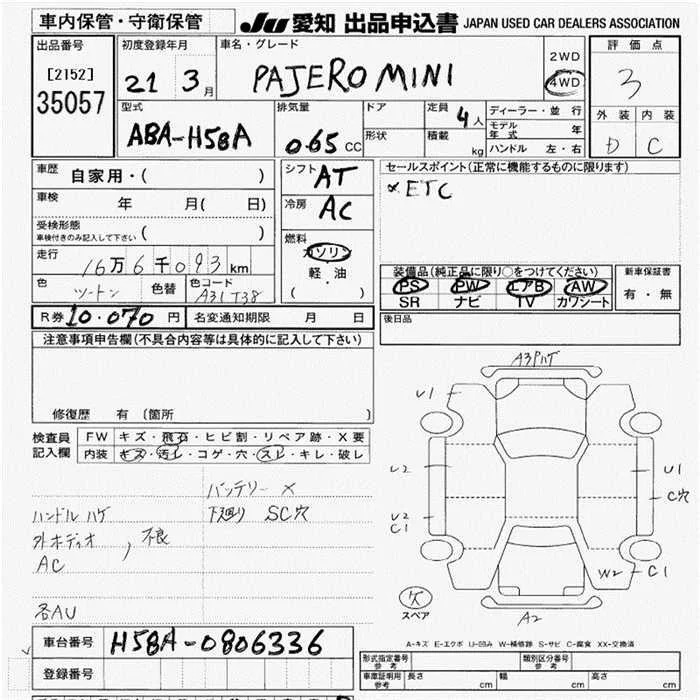 車内保管・守衛保管
JU 愛知 出品申込書 JAPAN USED CAR DEALERS ASSOCIATION
出品番号
[2152]
35057
初度登録年月
21 3月
車名・グレード
PAJERO MINI
2WD
4WD
評価点
3
外装 内装
D C
型式
ABA-H58A
排気量
0.65 CC
ドア
形状
定員 4人
積載 kg
ディーラー・並行
モデル年式 年
ハンドル 左・右
車歴 自家用・( )
車検 年 月( 日)
受検形態
車検付きのみ記入して下さい ( )
走行 16万6千093km
色 ツートン 色替 色コード A31T38
シフト AT
冷房 AC
燃料
ガソリン
軽・油
( )
セールスポイント(正常に機能するものに限ります)
× ETC
装備品(純正品に限り○をつけてください)
PS PW エアB AW
SR ナビ TV カワシート
新車保証書
有・無
R券 10.070円 名変通知期限 月 日
後日品
注意事項申告欄(不具合内容等は具体的に記入して下さい)
修復歴 有 〔箇所 〕
検査員記入欄
FW キズ・飛石・ヒビ割・リペア跡・X要
内装 キズ・汚レ・コゲ・穴・スレ・キレ・破レ
バッテリー ×
ハンドル ハゲ 下廻り SC穴
外オーディオ , 不良
AC
各AU
A3Pハゲ
U1
U2
U2
C1
U1
C穴
W2 C1
A2
欠
スペア
A-キズ E-エクボ U-凹み W-補修跡 S-サビ C-腐食 XX-交換済
車台番号 H58A-0806336
登録番号
形式指定番号 参考
類別区分番号 参考
車庫証明用 参考 長さ cm 幅 cm 高さ cm